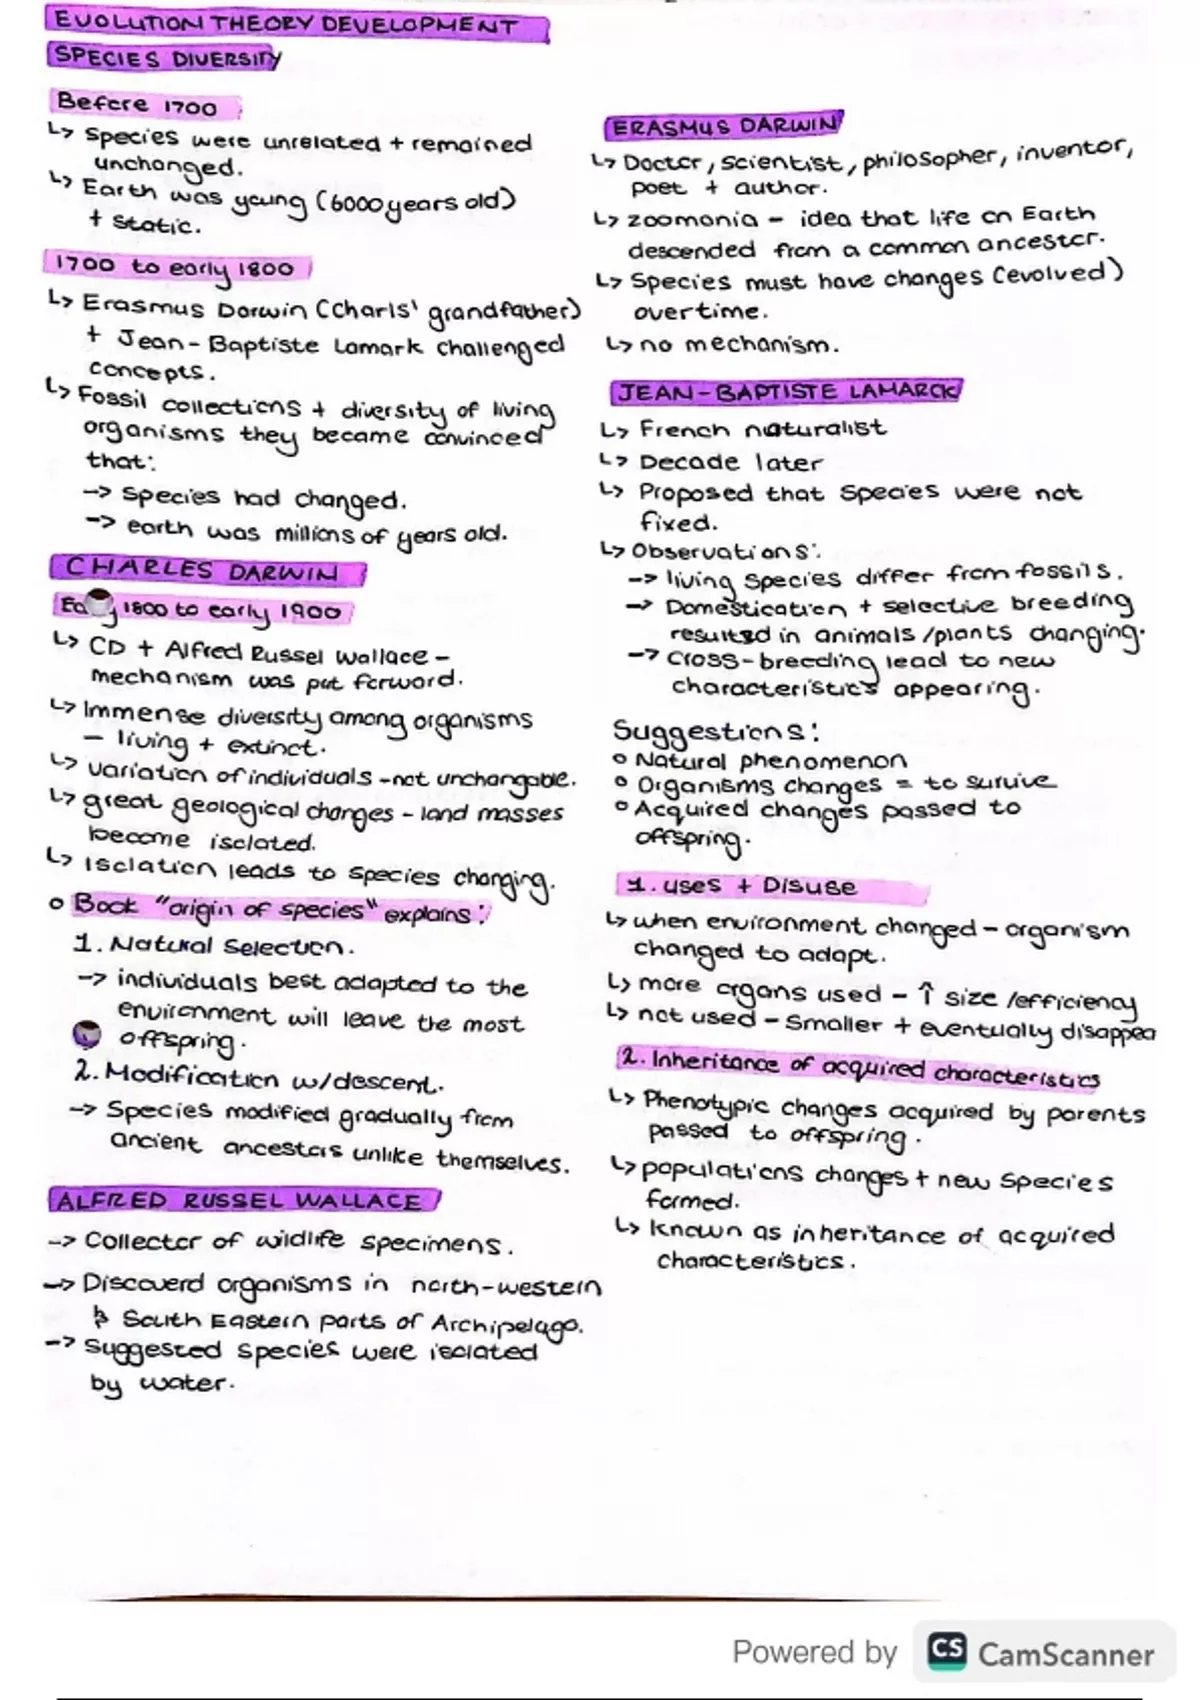 EVOLUTION THEORY DEVELOPMENT
SPECIES DIVERSITY
Before 1700
↳ Species were unrelated + remained
unchanged.
↳ Earth was young (6000 years old)
+ static.
1700 to early 1800
↳ Erasmus Darwin (Charls' grandfather)
+ Jean-Baptiste Lamark challenged
concepts.
↳ Fossil collections + diversity of living
organisms they became convinced
that:
-> Species had changed.
-> earth was millions of years old.
CHARLES DARWIN
1800 to early 1900
↳ CD + Alfred Russel Wallace -
mechanism was put forward.
↳ Immense diversity among organisms
- living + extinct.
↳ variation of individuals - not unchangable.
↳ great geological changes - land masses
become isolated.
↳ Isolation leads to species changing.
o Book "origin of species" explains:
1. Natural Selection.
-> individuals best adapted to the
environment will leave the most
offspring.
2. Modification w/descent.
-> Species modified gradually from
ancient ancestors unlike themselves.
ALFRED RUSSEL WALLACE
-> Collector of wildlife specimens.
-> Discoverd organisms in north-western
& South Eastern parts of Archipelago.
-> Suggested species were isolated
by water.
ERASMUS DARWIN
↳ Doctor, scientist, philosopher, inventor,
poet + author.
↳ zoomania - idea that life on Earth
descended from a common ancestor.
↳ Species must have changes (evolved)
overtime.
↳ no mechanism.
JEAN-BAPTISTE LAMARCK
↳ French naturalist
↳ Decade later
↳ Proposed that species were not
fixed.
↳ Observations:
-> living species differ from fossils.
-> Domestication + selective breeding
resulted in animals /plants changing.
-> Cross-breeding lead to new
characteristics appearing.
Suggestions:
o Natural phenomenon
o Organisms changes = to survive
o Acquired changes passed to
offspring.
1. uses + Disuse
↳ when environment changed - organism
changed to adapt.
↳ more organs used - ↑ size /efficiency
↳ not used - smaller + eventually disappea
2. Inheritance of acquired characteristics
↳ Phenotypic changes acquired by parents
passed to offspring.
↳ populations changes + new species
formed.
↳ known as inheritance of acquired
characteristics.
Powered by CS CamScanner